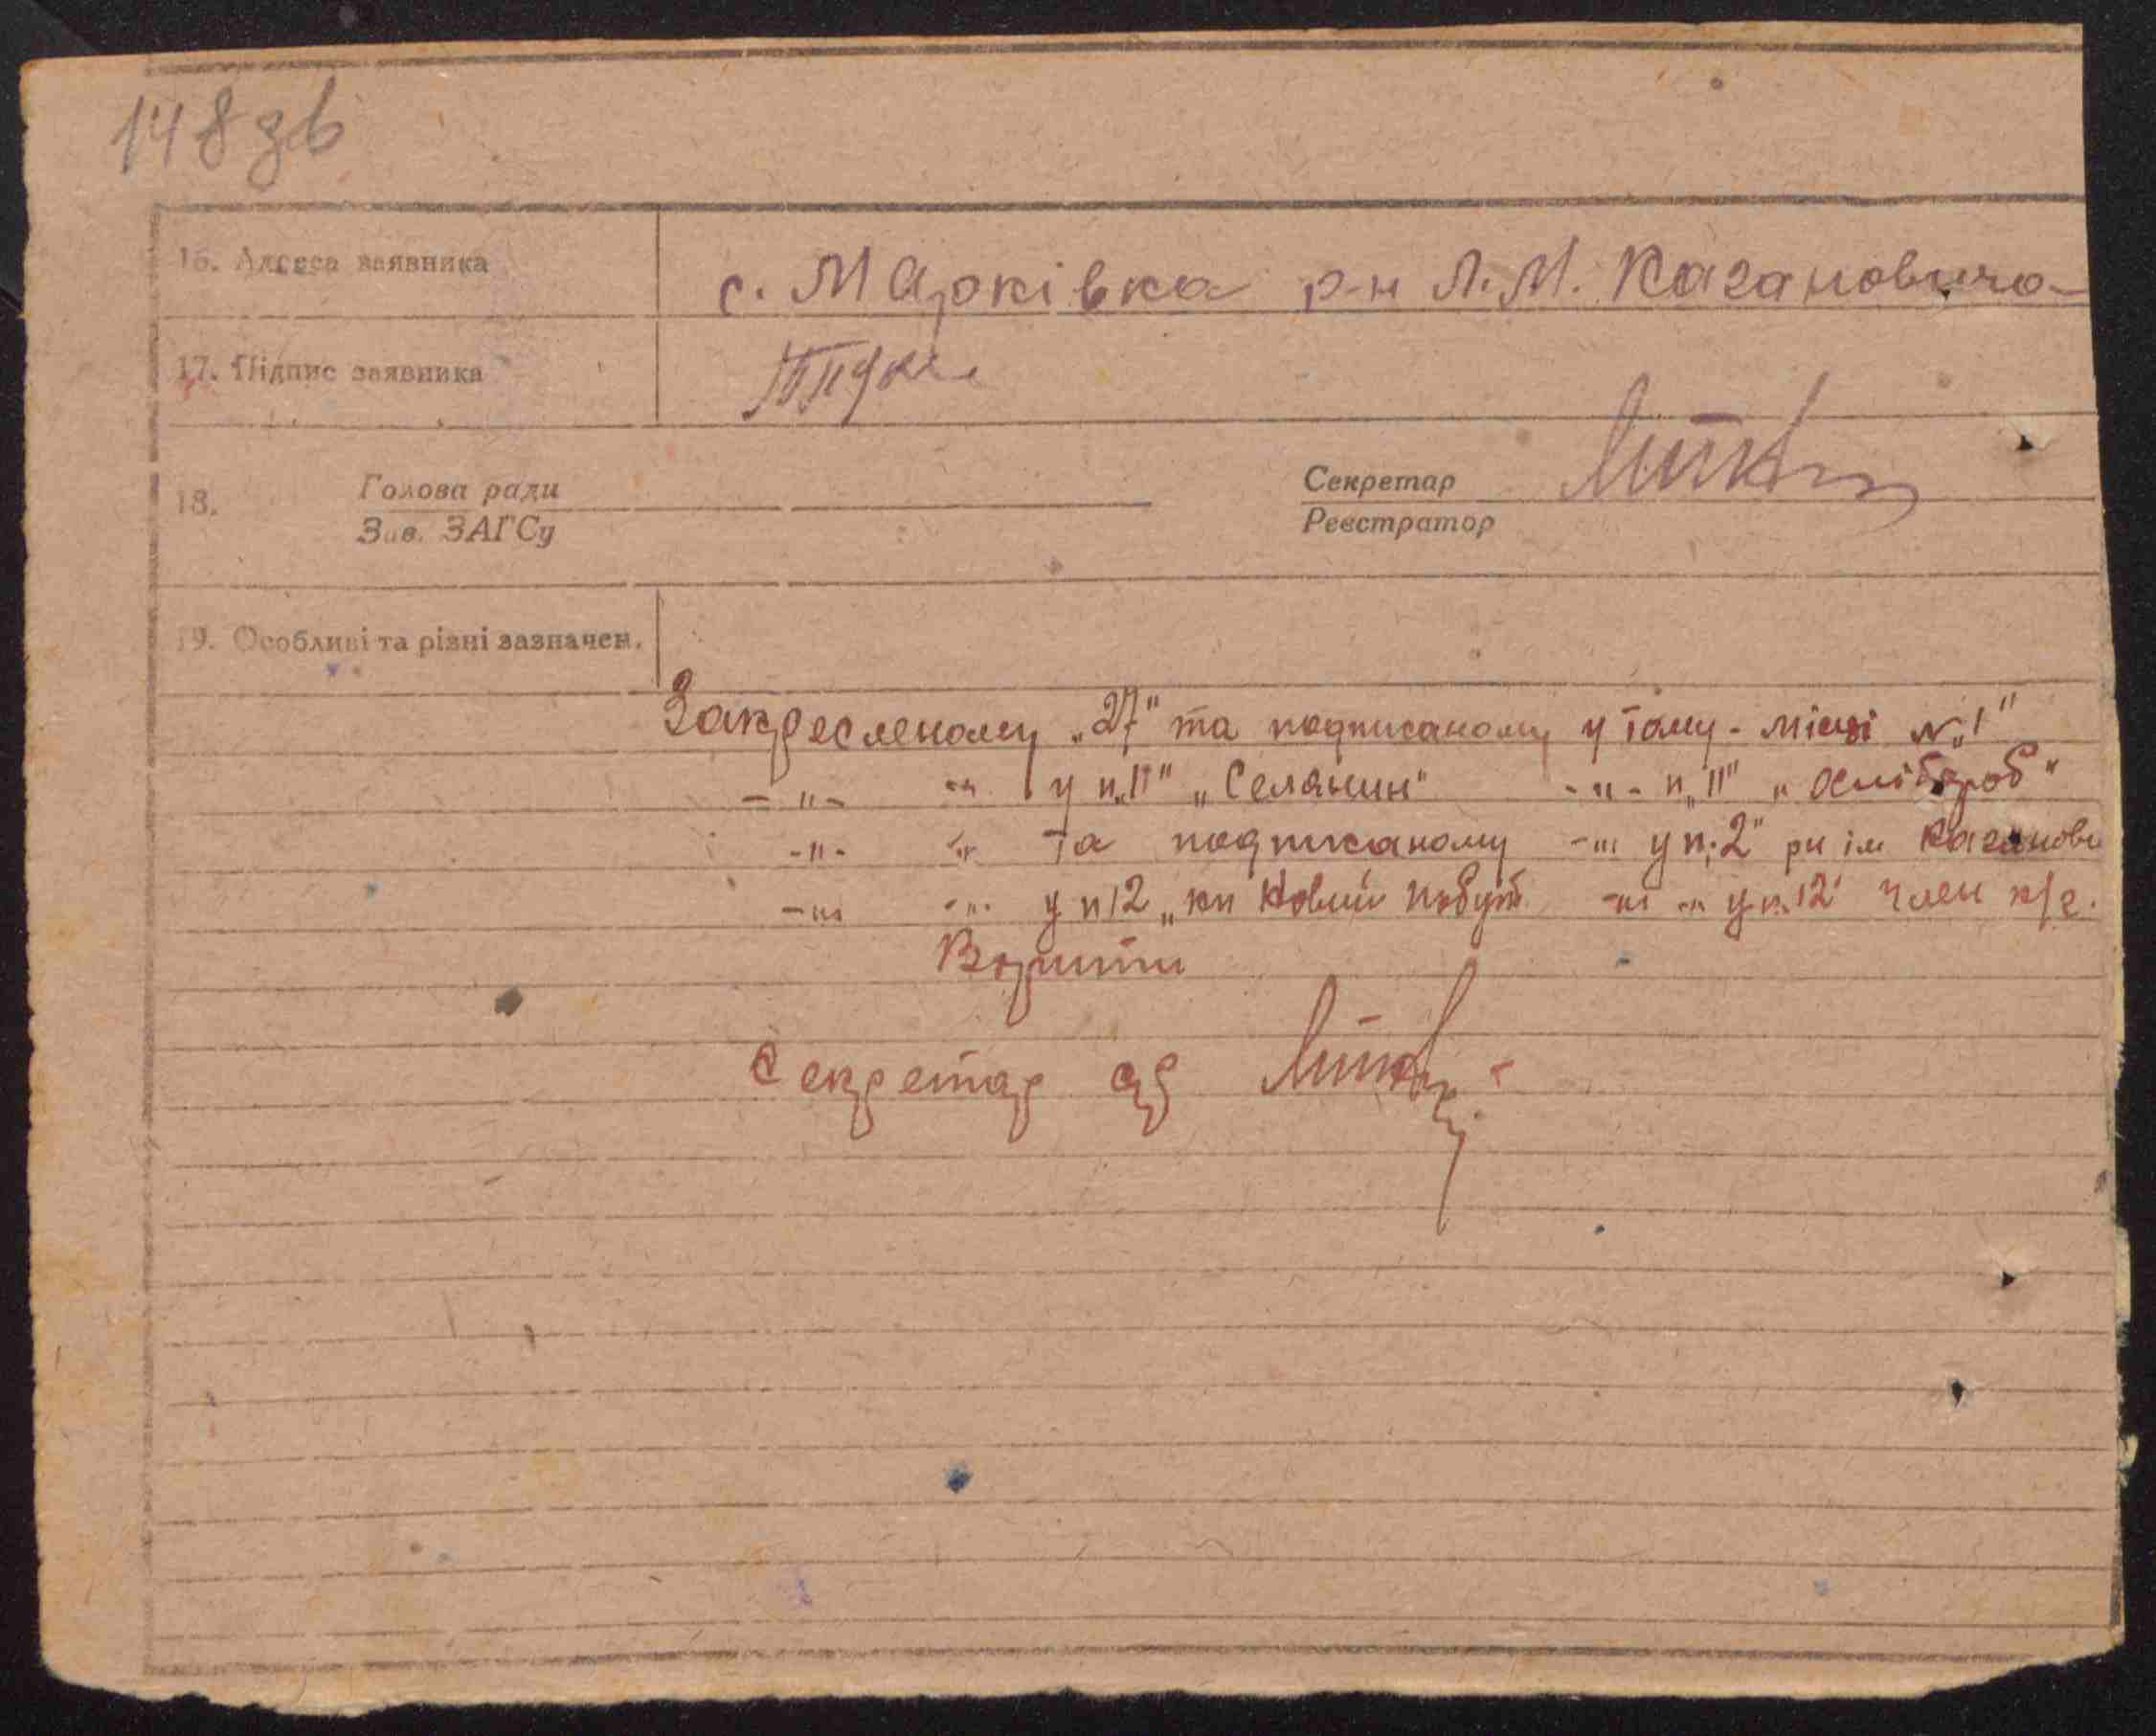 148 зв
16. Адреса заявника с. Марківка р-н Л.М. Кагановича
17. Підпис заявника
18. Голова ради Секретар
Зав. ЗАГСу Реєстратор
19. Особливі та різні зазначен.
Закресленому „27" та подписаному у тому-місці №„1"
–"– –"– у п„11" „Селянин" –"– п„11" „Хлібороб"
–"– –"– та подписаному –"– у п.2" рн ім Каганови
–"– –"– у п12 „кп Новий побут –"– –"– у п.12" член к/г.
Вірити
Секретар с/р